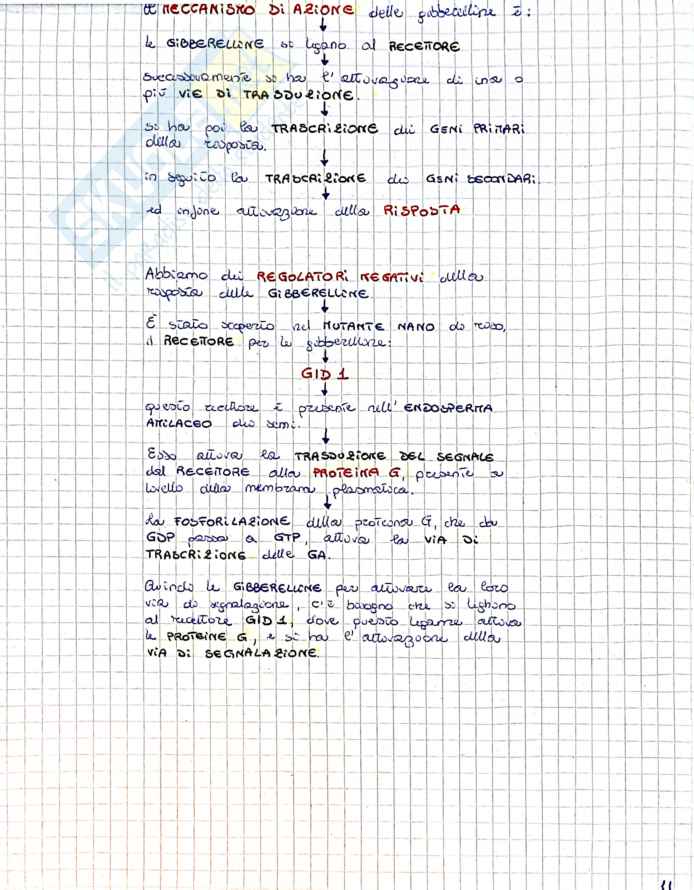 il MECCANISMO DI AZIONE delle gibberelline è:
le GIBBERELLINE si legano al RECETTORE
successivamente si ha l'attivazione di una o
più VIE DI TRASDUZIONE.
si ha poi la TRASCRIZIONE dei GENI PRIMARI
della risposta.
in seguito la TRASCRIZIONE dei GENI SECONDARI.
ed infine attivazione della RISPOSTA
Abbiamo dei REGOLATORI NEGATIVI della
risposta delle GIBBERELLINE
È stato scoperto nel MUTANTE NANO di riso,
il RECETTORE per le gibberelline:
GID 1
questo recettore è presente nell'ENDOSPERMA
AMILACEO dei semi.
Esso attiva la TRASDUZIONE DEL SEGNALE
dal RECETTORE alla PROTEINA G, presente a
livello della membrana plasmatica.
La FOSFORILAZIONE della proteina G, che da
GDP passa a GTP, attiva la VIA DI
TRASCRIZIONE delle GA.
Quindi le GIBBERELLINE per attivare la loro
via di segnalazione, c'è bisogno che si leghino
al recettore GID 1, dove questo legame attiva
le PROTEINE G, e si ha l'attivazione della
VIA DI SEGNALAZIONE.
11